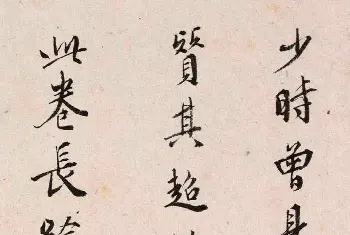 少時曾見
質其超
此卷長跋